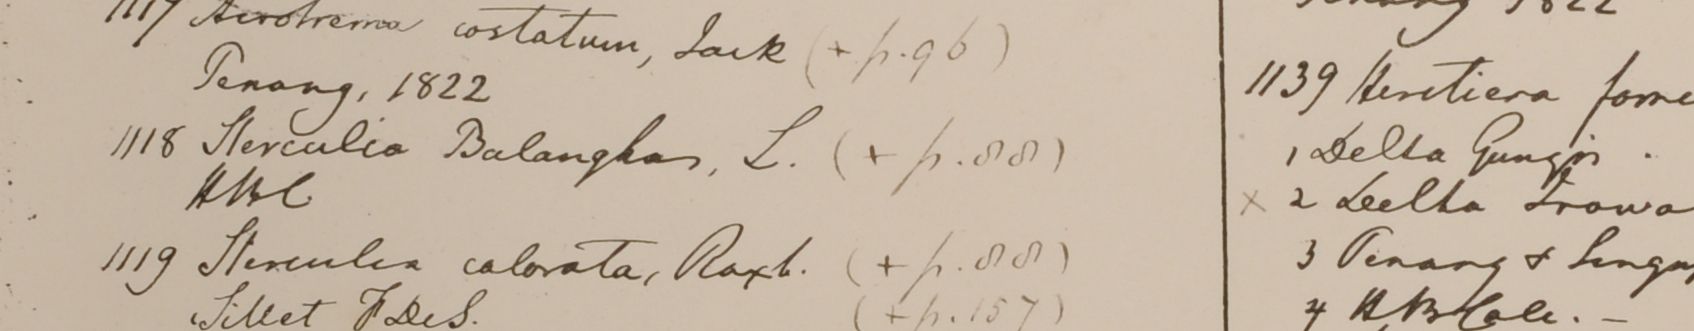 1117 Acrotrema costatum, Jack (+ p. 96)
Penang, 1822
1118 Sterculia Balanghas, L. (+ p. 88)
HBC
1119 Sterculia colorata, Roxb. (+ p. 88)
Sillet FDeS. (+ p. 157)
Penang 1822
1139 Heretiera fome
1 Delta Gungis.
x 2 Delta Irawa
3 Penang & Singap
4 HBCalc. –